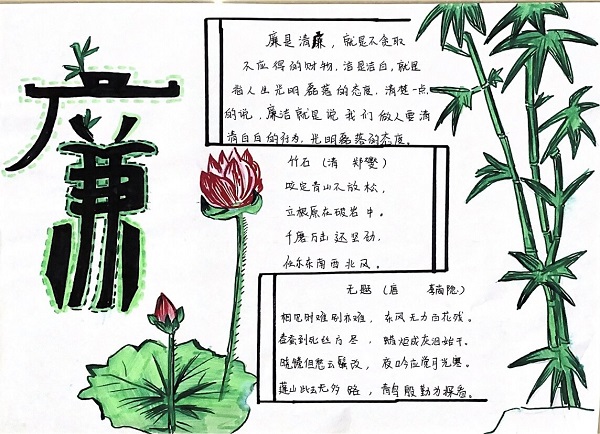 廉
廉是清廉，就是不贪取
不应得的财物，洁是洁白，就是
指人生光明磊落的态度。清楚一点
的说，廉洁就是说我们做人要清
清白白的行为，光明磊落的态度。
竹石（清 郑燮）
咬定青山不放松，
立根原在破岩中。
千磨万击还坚劲，
任东东南西北风。
无题（唐 李商隐）
相见时难别亦难，东风无力百花残。
春蚕到死丝方尽，蜡炬成灰泪始干。
晓镜但愁云鬓改，夜吟应觉月光寒。
蓬山此去无多路，青鸟殷勤为探看。